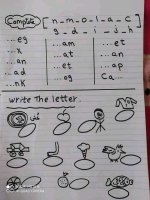 Complete [ n _ m _ o _ l _ a _ c
g _ d _ i _ j _ h ]
...eg ...am ...et
...x ...at ...ap
...an ...et ...an
...ad ...ep
...nk ...og Ca...
write The letter.